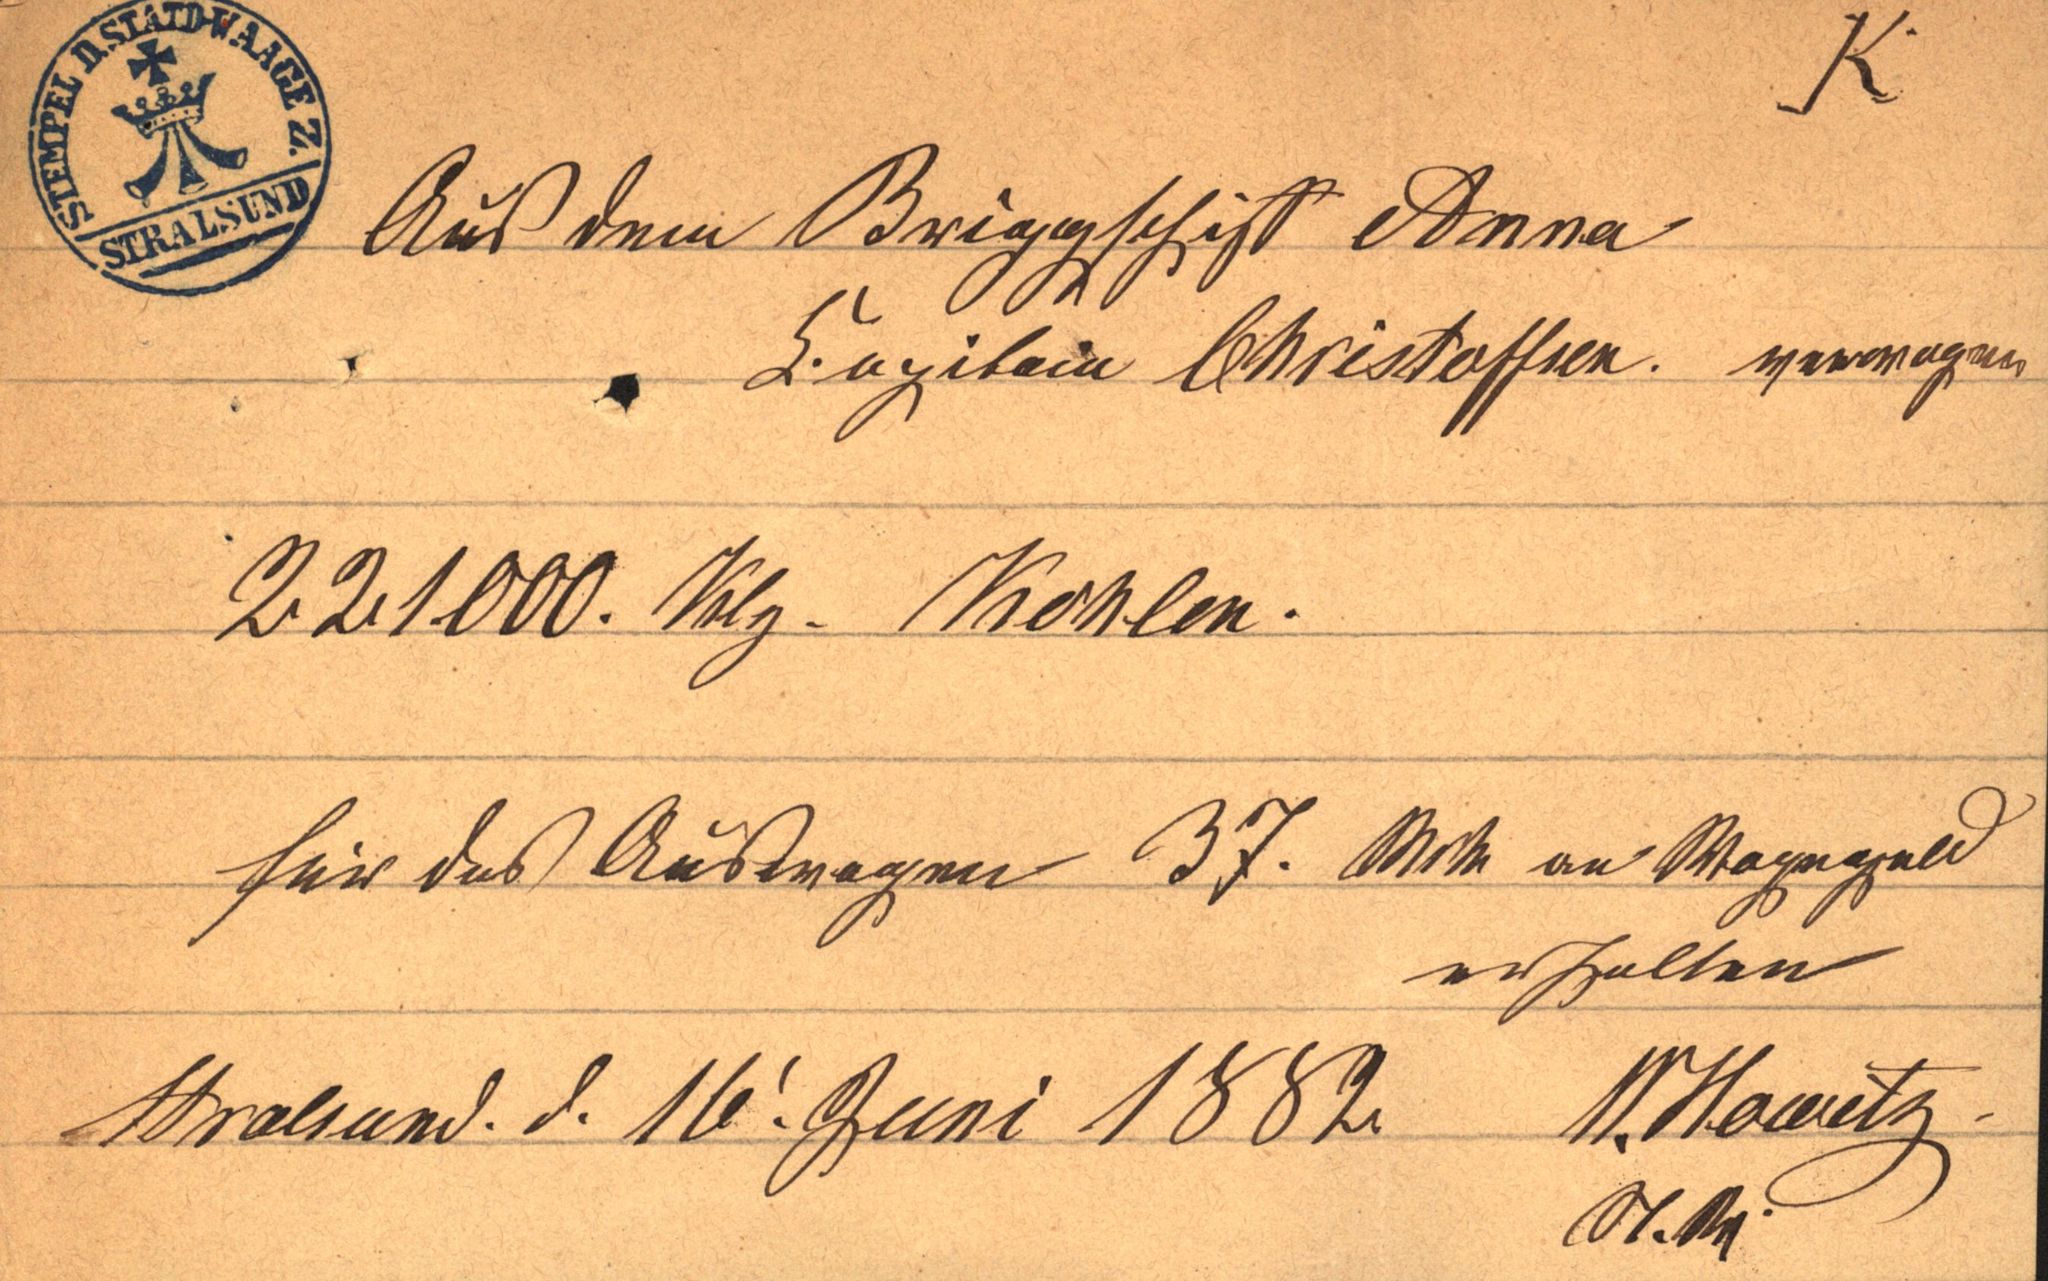 STEMPEL D. STATD-WAAGE Z.
STRALSUND
K
Aus dem Briggschiff Anna
Capitain Christoffsen. verwogen
221000. Klg. Kohlen.
für das Auswagen 37. Mrk an Wagegeld
erhalten
Stralsund. d. 16'. Juni 1882
W. Howitz